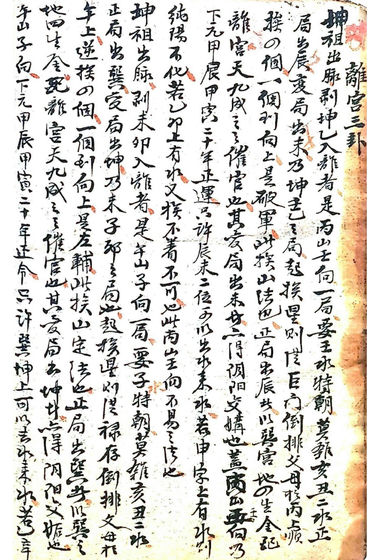 離宮三卦
坤祖出脉剥坤乙入離者是丙山壬向一局要壬水特朝莫雜亥丑二水正
局出辰變局出未乃坤壬乙局起挨星則從巨門倒排父母於丙上順
挨の個一個到向上是破軍此挨山法也正局出辰此以巽宮地の生金配
離宮天九成之之催官也其變局出未廿六得陰陽交媾也蓋向以
下元甲辰甲寅二十年正運只許辰未二位可以出水來水若申字上有水則
純陽不化若乙卯上有水又挨不着不可也此丙山壬向不易之法也
坤祖出脉剥未卯入離者是午山子向一局要子特朝莫雜亥丑二水
正局出巽變局出坤乃未子卯之局也起挨星則從祿存倒排父母於
午上逆挨の個一個到向上是左輔此挨山定法也正局出巽此以巽之
地四生金配離宮天九成之之催官也其變局出坤廿六得陰陽媾也
午山子向下元甲辰甲寅二十年正令只許巽坤上可以去水來水若